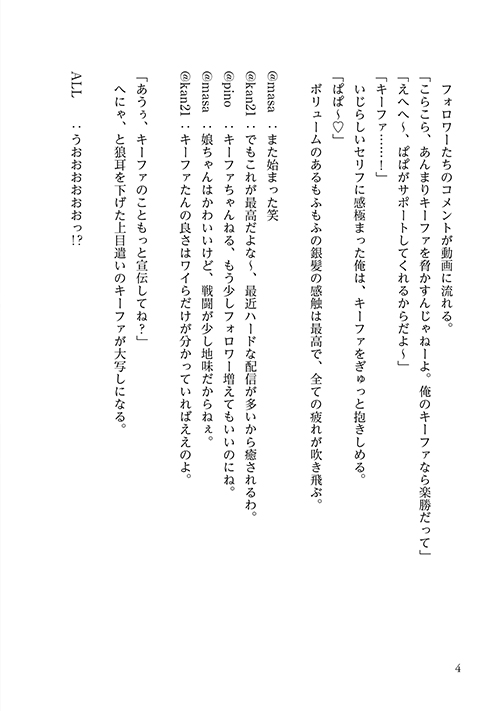 フォロワーたちのコメントが動画に流れる。
「こらこら、あんまりキーファを脅かすんじゃねーよ。俺のキーファなら楽勝だって」
「えへへ～、ぱぱがサポートしてくれるからだよ～」
「キーファ……！」
いじらしいセリフに感極まった俺は、キーファをぎゅっと抱きしめる。
「ぱぱ～♡」
ボリュームのあるもふもふの銀髪の感触は最高で、全ての疲れが吹き飛ぶ。
@masa：また始まった笑
@kan21：でもこれが最高だよな～、最近ハードな配信が多いから癒されるわ。
@pino：キーファちゃんねる、もう少しフォロワー増えてもいいのにね。
@masa：娘ちゃんはかわいいけど、戦闘が少し地味だからねぇ。
@kan21：キーファたんの良さはワイらだけが分かっていればええのよ。
「あうぅ、キーファのこともっと宣伝してね？」
へにゃ、と狼耳を下げた上目遣いのキーファが大写しになる。
ALL　：うおおおおおおっ!?
4